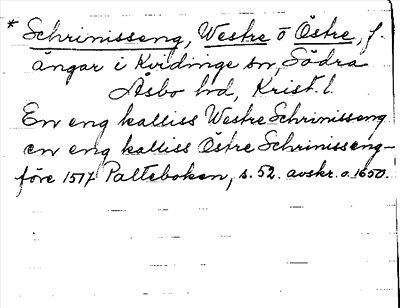 * Schrinisseng, Westre o Östre, f.
ängar i Kvidinge sn, Södra
Åsbo hd, Krist. l.
En eng kalliss Westre Schrinisseng
en eng kalliss Östre Schrinisseng-
före 1517 Palteboken, s. 52. avskr. o. 1650.